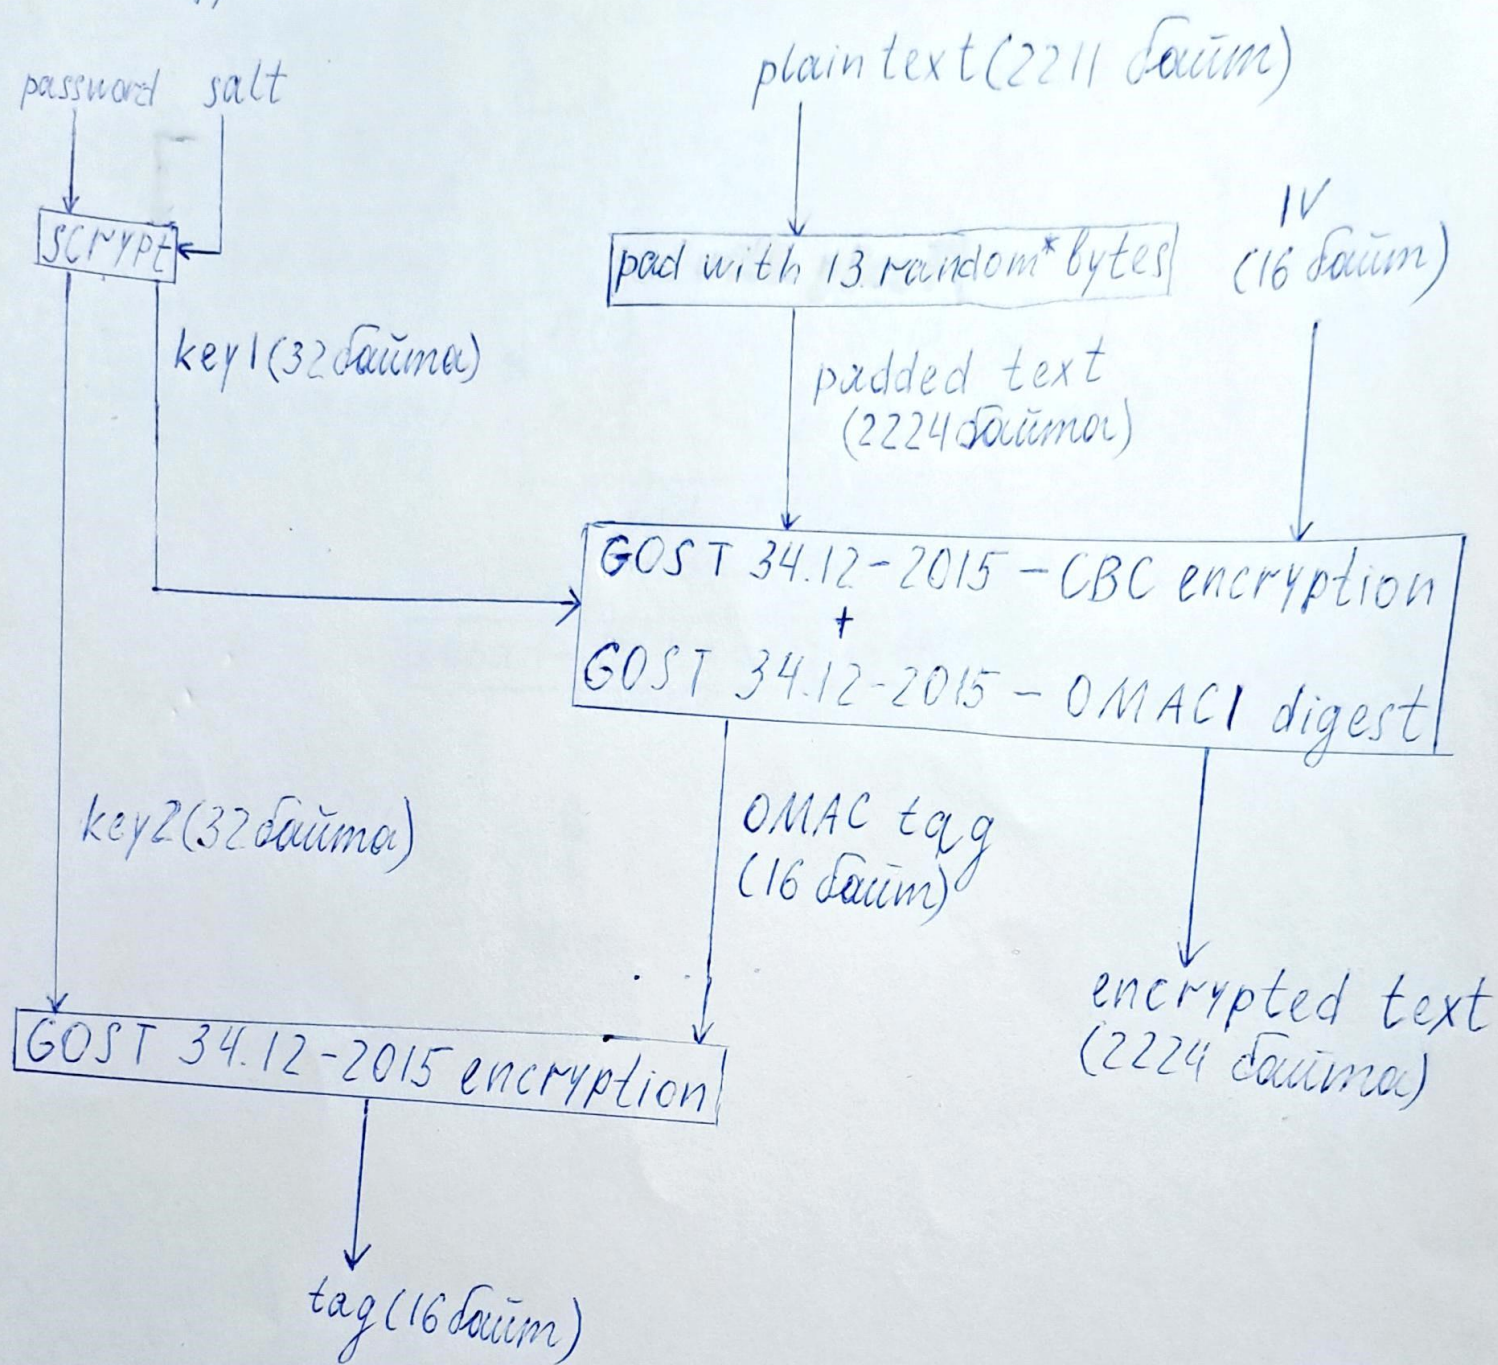 password salt
plain text (2211 байт)
scrypt
pad with 13 random* bytes
IV
(16 байт)
key1 (32 байта)
padded text
(2224 байта)
GOST 34.12-2015 - CBC encryption
+
GOST 34.12-2015 - OMAC1 digest
key2 (32 байта)
OMAC tag
(16 байт)
encrypted text
(2224 байта)
GOST 34.12-2015 encryption
tag (16 байт)